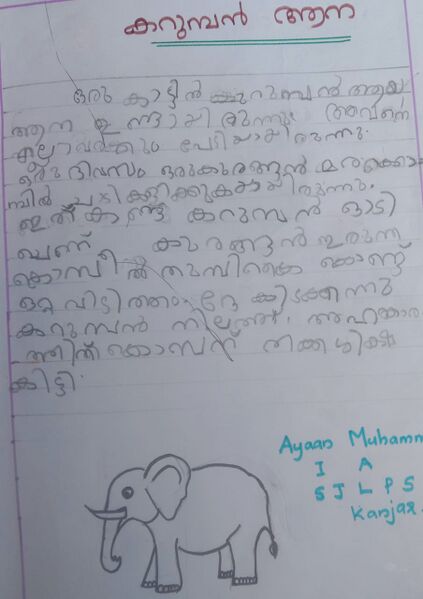 കറുമ്പൻ ആന
ഒരു കാട്ടിൽ കുറുമ്പൻ ആയ
ആന ഉണ്ടായിരുന്നു. അവനെ
എല്ലാവർക്കും പേടിയായിരുന്നു.
ഒരു ദിവസം ഒരു കുരങ്ങൻ മരക്കൊ
മ്പിൽ ചാടി കളിക്കുകയായിരുന്നു.
ഇത് കണ്ട കറുമ്പൻ ഓടി
വന്ന് കുരങ്ങൻ ഇരുന്ന
കൊമ്പിൽ തുമ്പിക്കൈ കൊണ്ട്
ഒറ്റ പിടിത്തം. ദേ കിടക്കുന്നു
കറുമ്പൻ നിലത്ത്. അഹങ്കാര
ത്തിന് കൊമ്പന് തക്ക ശിക്ഷ
കിട്ടി.
Ayaan Muhamm
I A
S J L P S
Kanjar